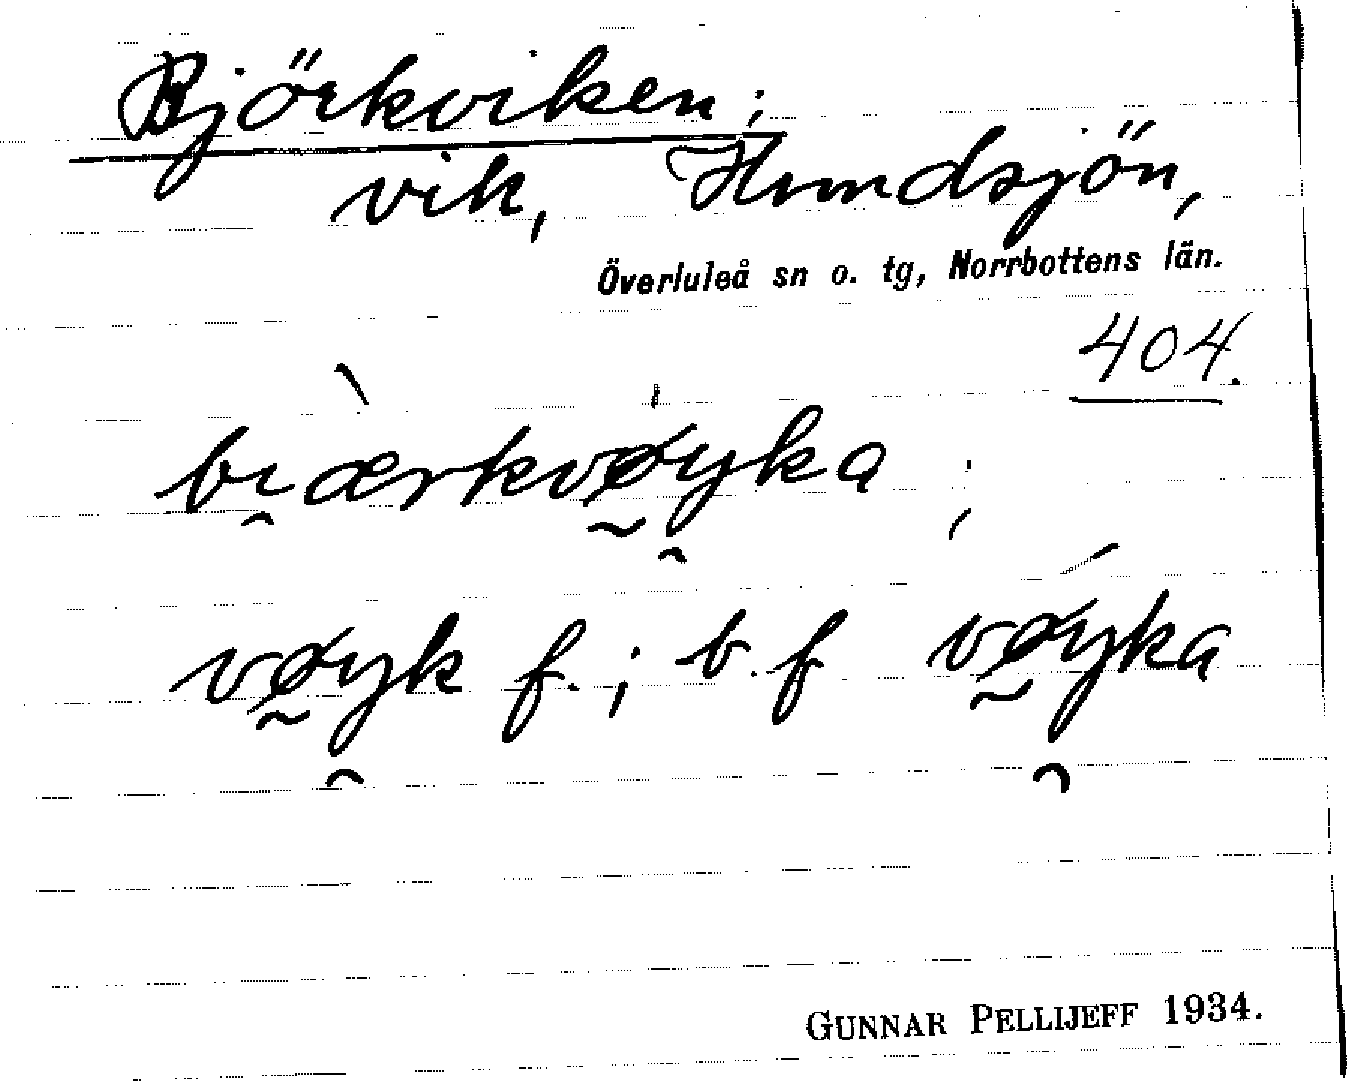 Björkviken;
vik, Hundsjön,
Överluleå sn o. tg, Norrbottens län.
404.
bı̯ærkvø̰y̯ka ;
vø̰y̯k f.; b.f vø̰y̯ka
GUNNAR PELLIJEFF 1934.